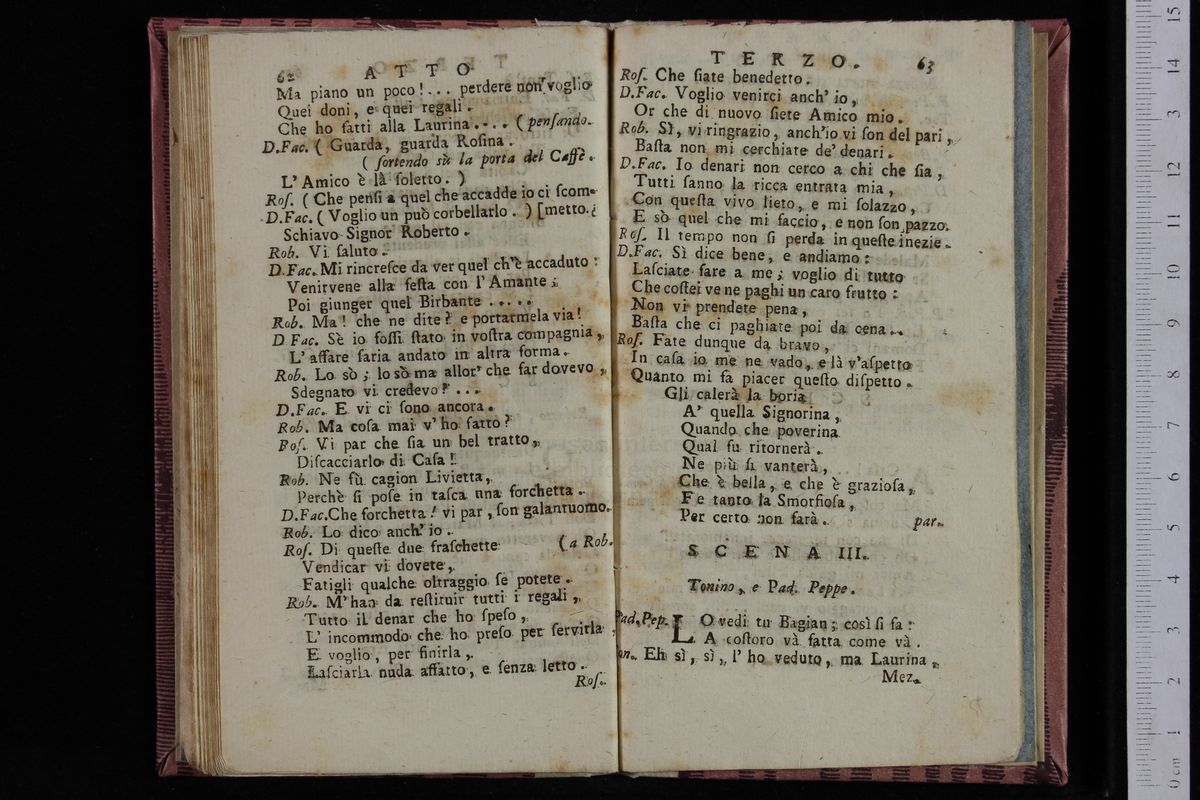 62 ATTO
Ma piano un poco!... perdere non voglio
Quei doni, e quei regali.
Che ho fatti alla Laurina.... (penſando.
D.Fac. (Guarda, guarda Roſina.
(ſortendo sù la porta del Caffè.
L' Amico è là ſoletto.)
Roſ. (Che penſi a quel che accadde io ci ſcom-
D.Fac. (Voglio un può corbellarlo.) [metto.
Schiavo Signor Roberto.
Rob. Vi ſaluto.
D.Fac. Mi rincreſce da ver quel ch'è accaduto:
Venirvene alla feſta con l'Amante;
Poi giunger quel Birbante.....
Rob. Ma! che ne dite? e portarmela via!
D Fac. Sè io foſſi ſtato in voſtra compagnia,
L' affare ſaria andato in altra forma.
Rob. Lo sò; lo sò ma allor' che far dovevo,
Sdegnato vi credevo?...
D.Fac. E vi ci ſono ancora.
Rob. Ma coſa mai v' ho fatto?
Roſ. Vi par che ſia un bel tratto,
Diſcacciarlo di Caſa!
Rob. Ne fù cagion Livietta,
Perchè ſi poſe in taſca una forchetta.
D.Fac. Che forchetta! vi par, ſon galantuomo.
Rob. Lo dico anch' io.
Roſ. Di queſte due fraſchette (a Rob.
Vendicar vi dovete,
Fatigli qualche oltraggio ſe potete.
Rob. M'han da reſtituir tutti i regali,
Tutto il denar che ho ſpeſo,
L' incommodo che ho preſo per ſervirla,
E voglio, per finirla,
Laſciarla nuda affatto, e ſenza letto.
Roſ.
TERZO. 63
Roſ. Che ſiate benedetto.
D.Fac. Voglio venirci anch' io,
Or che di nuovo ſiete Amico mio.
Rob. Sì, vi ringrazio, anch'io vi ſon del pari,
Baſta non mi cerchiate de' denari.
D.Fac. Io denari non cerco a chi che ſia,
Tutti ſanno la ricca entrata mia,
Con queſta vivo lieto, e mi ſolazzo,
E sò quel che mi faccio, e non ſon pazzo.
Roſ. Il tempo non ſi perda in queſte inezie.
D.Fac. Sì dice bene, e andiamo:
Laſciate fare a me; voglio di tutto
Che coſtei ve ne paghi un caro frutto:
Non vi prendete pena,
Baſta che ci paghiate poi da cena.
Roſ. Fate dunque da bravo,
In caſa io me ne vado, e là v'aſpetto
Quanto mi fa piacer queſto diſpetto.
Gli calerà la boria
A' quella Signorina,
Quando che poverina
Qual fu ritornerà.
Ne più ſi vanterà,
Che è bella, e che è grazioſa,
Fe tanto la Smorfioſa,
Per certo non farà. par.
SCENA III.
Tonino, e Pad. Peppe.
Pad.Pep. LO vedi tu Bagian; così ſi fa:
A coſtoro và fatta come và.
on. Eh sì, sì, l' ho veduto, ma Laurina,
Mez.
0 cm 1 2 3 4 5 6 7 8 9 10 11 12 13 14 15